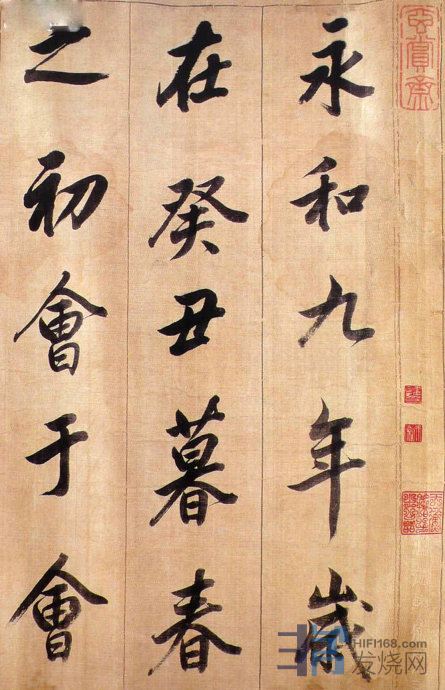 永和九年歲
在癸丑暮春
之初會于會
HIFI168.com
发烧网